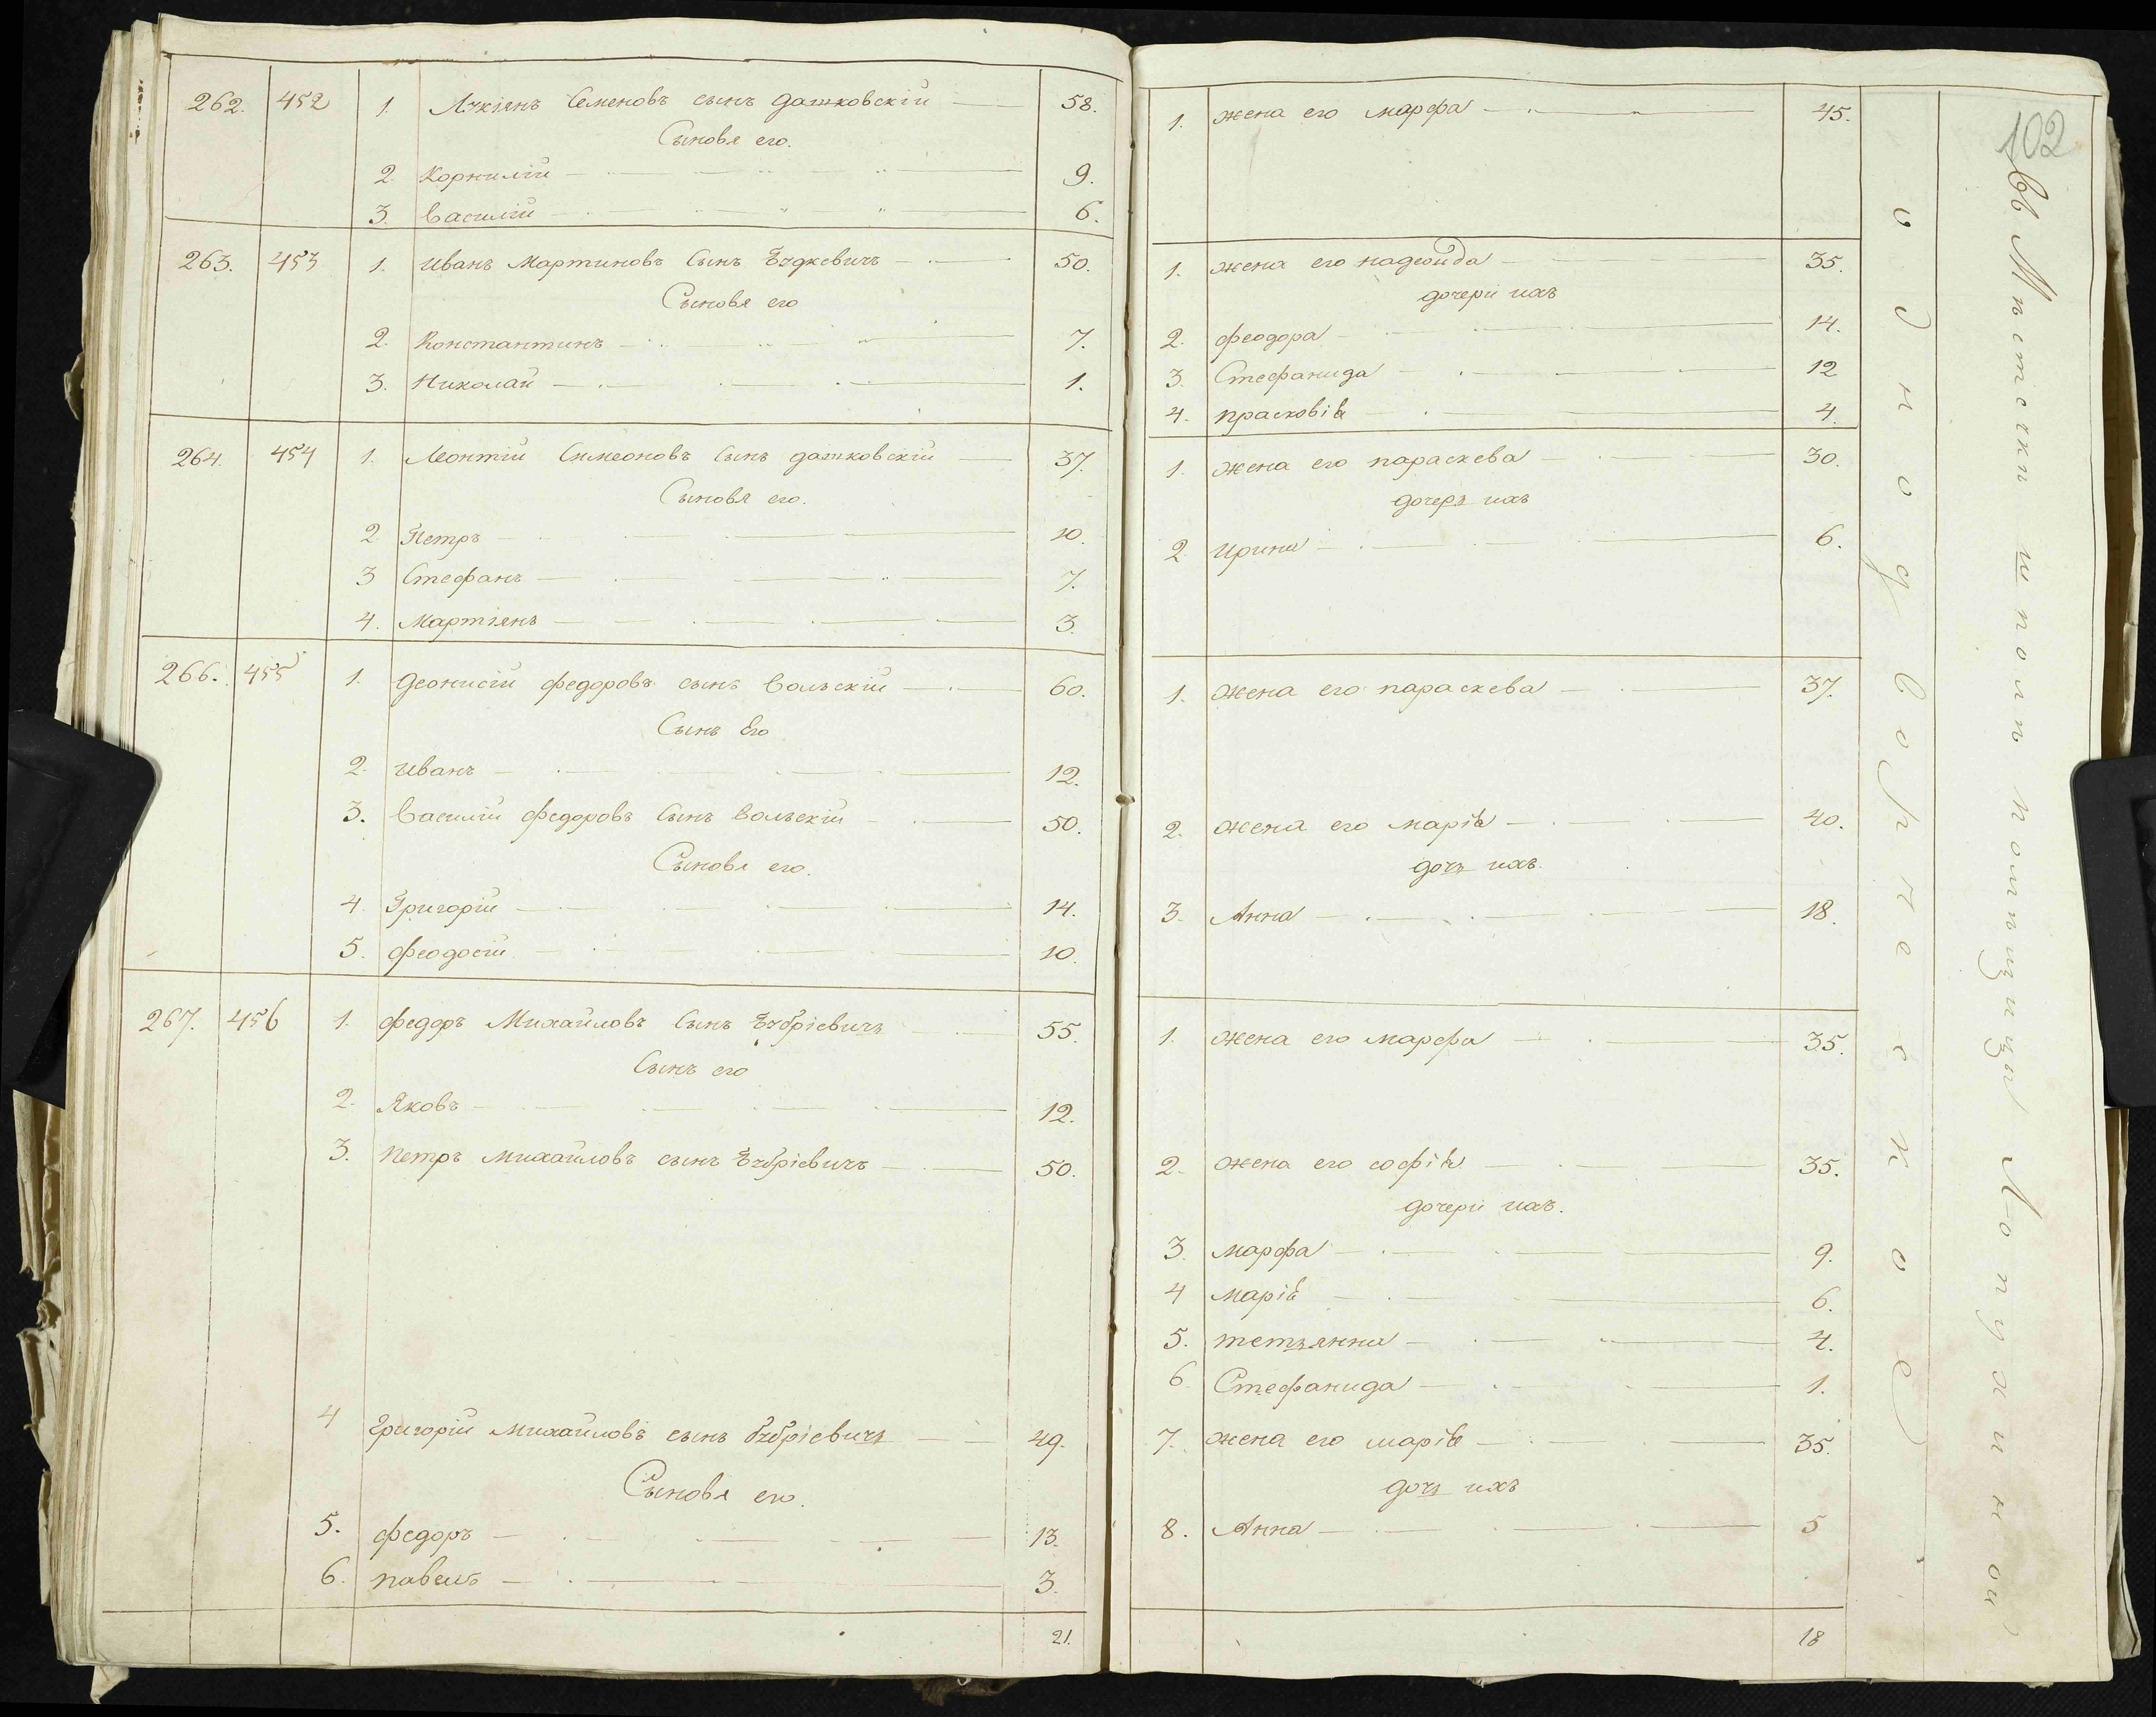 262. 452 1. Лукіянъ Семеновъ сынъ дашковскій 58.
Сыновя его.
2. Корнилій 9.
3. Василій 6.
263. 453 1. Иванъ Мартиновъ Сынъ 50.
Сыновя его
2. Константинъ 7.
3. Николай 1.
264. 454 1. Леонтій Симеоновъ Сынъ дашковскій 37.
Сыновя его.
2 Петръ 10.
3 Стефанъ 7.
4. Мартіянъ 3.
266. 455 1. Деонисій федоровъ сынъ Вольскій 60.
Сынъ Его
2. Иванъ 12.
3. Василій федоровъ Сынъ Вольскій 50.
Сыновя его.
4. Григорій 14.
5. феодосій 10.
267. 456 1. федоръ Михайловъ Сынъ 55.
Сынъ его
2. Яковъ 12.
3. Петръ Михайловъ сынъ 50.
4 Григорій Михайловъ сынъ 49.
Сыновя его.
5. федоръ 13.
6. павелъ 3.
21.
102
1. жена его марфа 45.
1. жена его надежда 35.
дочери ихъ
2. феодора 14.
3. Стефанида 12
4. прасковія 4.
1. жена его параскева 30.
дочеръ ихъ
2 Ирина 6.
1. жена его параскева 37.
2. жена его марія 40.
дочь ихъ.
3. Анна 18.
1. жена его марфа 35.
2. жена его софія 35.
дочери ихъ.
3. марфа 9.
4 марія 6.
5. тетьянна 4.
6 Стефанида 1.
7. жена его марія 35.
дочь ихъ
8. Анна 5
18
однодворческое
Въ Мѣстечки шполѣ помѣщицы Лопухиной